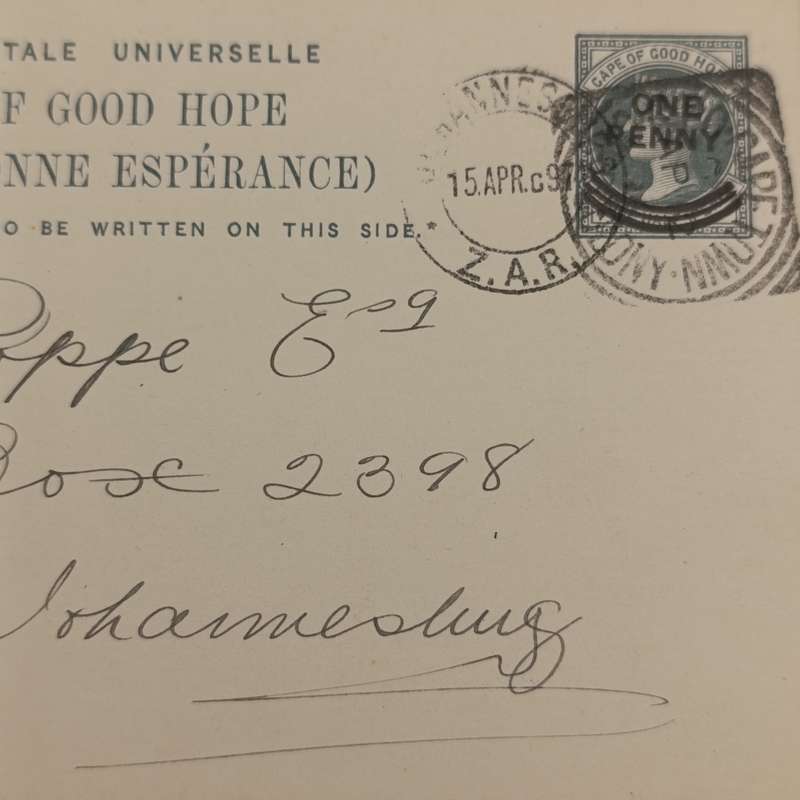 TALE UNIVERSELLE
F GOOD HOPE
ONNE ESPÉRANCE)
O BE WRITTEN ON THIS SIDE.*
CAPE OF GOOD HO
ONE
PENNY
JOHANNESB
15.APR.C97
Z.A.R.
CAPE TOWN·
oppe Esq
Box 2398
Johannesburg